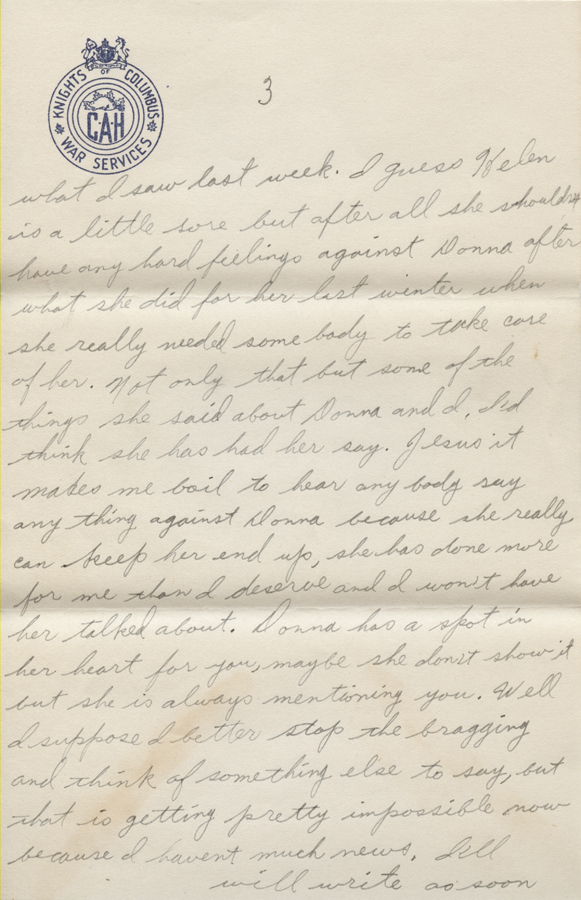 KNIGHTS OF COLUMBUS
CAH
WAR SERVICES
3
what I saw last week. I guess Helen
is a little sore but after all she shouldn't
have any hard feelings against Donna after
what she did for her last winter when
she really needed some body to take care
of her. Not only that but some of the
things she said about Donna and I, I'd
think she has had her say. Jesus it
makes me boil to hear any body say
any thing against Donna because she really
can keep her end up, she has done more
for me than I deserve and I won't have
her talked about. Donna has a spot in
her heart for you, maybe she don't show it
but she is always mentioning you. Well
I suppose I better stop the bragging
and think of something else to say, but
that is getting pretty impossible now
because I havent much news. I'll
will write as soon